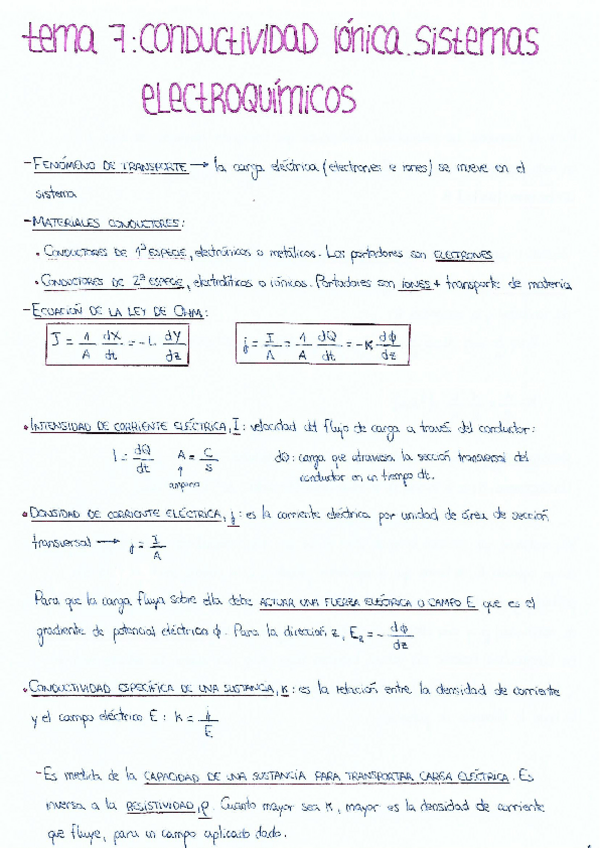 tema 7: CONDUCTIVIDAD IÓNICA. SISTEMAS
ELECTROQUÍMICOS
- FENÓMENO DE TRANSPORTE → la carga eléctrica (electrones e iones) se mueve en el
sistema
- MATERIALES CONDUCTORES:
• CONDUCTORES DE 1ª ESPECIE, electrónicos o metálicos. Los portadores son ELECTRONES
• CONDUCTORES DE 2ª ESPECIE, electrolíticos o iónicos. Portadores son IONES + transporte de materia
- ECUACIÓN DE LA LEY DE OHM:
J = 1/A dX/dt = -L · dY/dz   j = I/A = 1/A dQ/dt = -κ dϕ/dz
• INTENSIDAD DE CORRIENTE ELÉCTRICA, I: velocidad del flujo de carga a través del conductor:
I = dQ/dt   A = C/s   dQ: carga que atraviesa la sección transversal del
amperio   conductor en un tiempo dt.
• DENSIDAD DE CORRIENTE ELÉCTRICA, j: es la corriente eléctrica por unidad de área de sección
transversal → j = I/A
Para que la carga fluya sobre ella debe ACTUAR UNA FUERZA ELÉCTRICA O CAMPO E que es el
gradiente de potencial eléctrico ϕ. Para la dirección z, E_z = - dϕ/dz
• CONDUCTIVIDAD ESPECÍFICA DE UNA SUSTANCIA, κ: es la relación entre la densidad de corriente
y el campo eléctrico E: κ = j/E
- Es medida de la CAPACIDAD DE UNA SUSTANCIA PARA TRANSPORTAR CARGA ELÉCTRICA. Es
inversa a la RESISTIVIDAD, ρ. Cuanto mayor sea κ, mayor es la densidad de corriente
que fluye, para un campo aplicado dado.